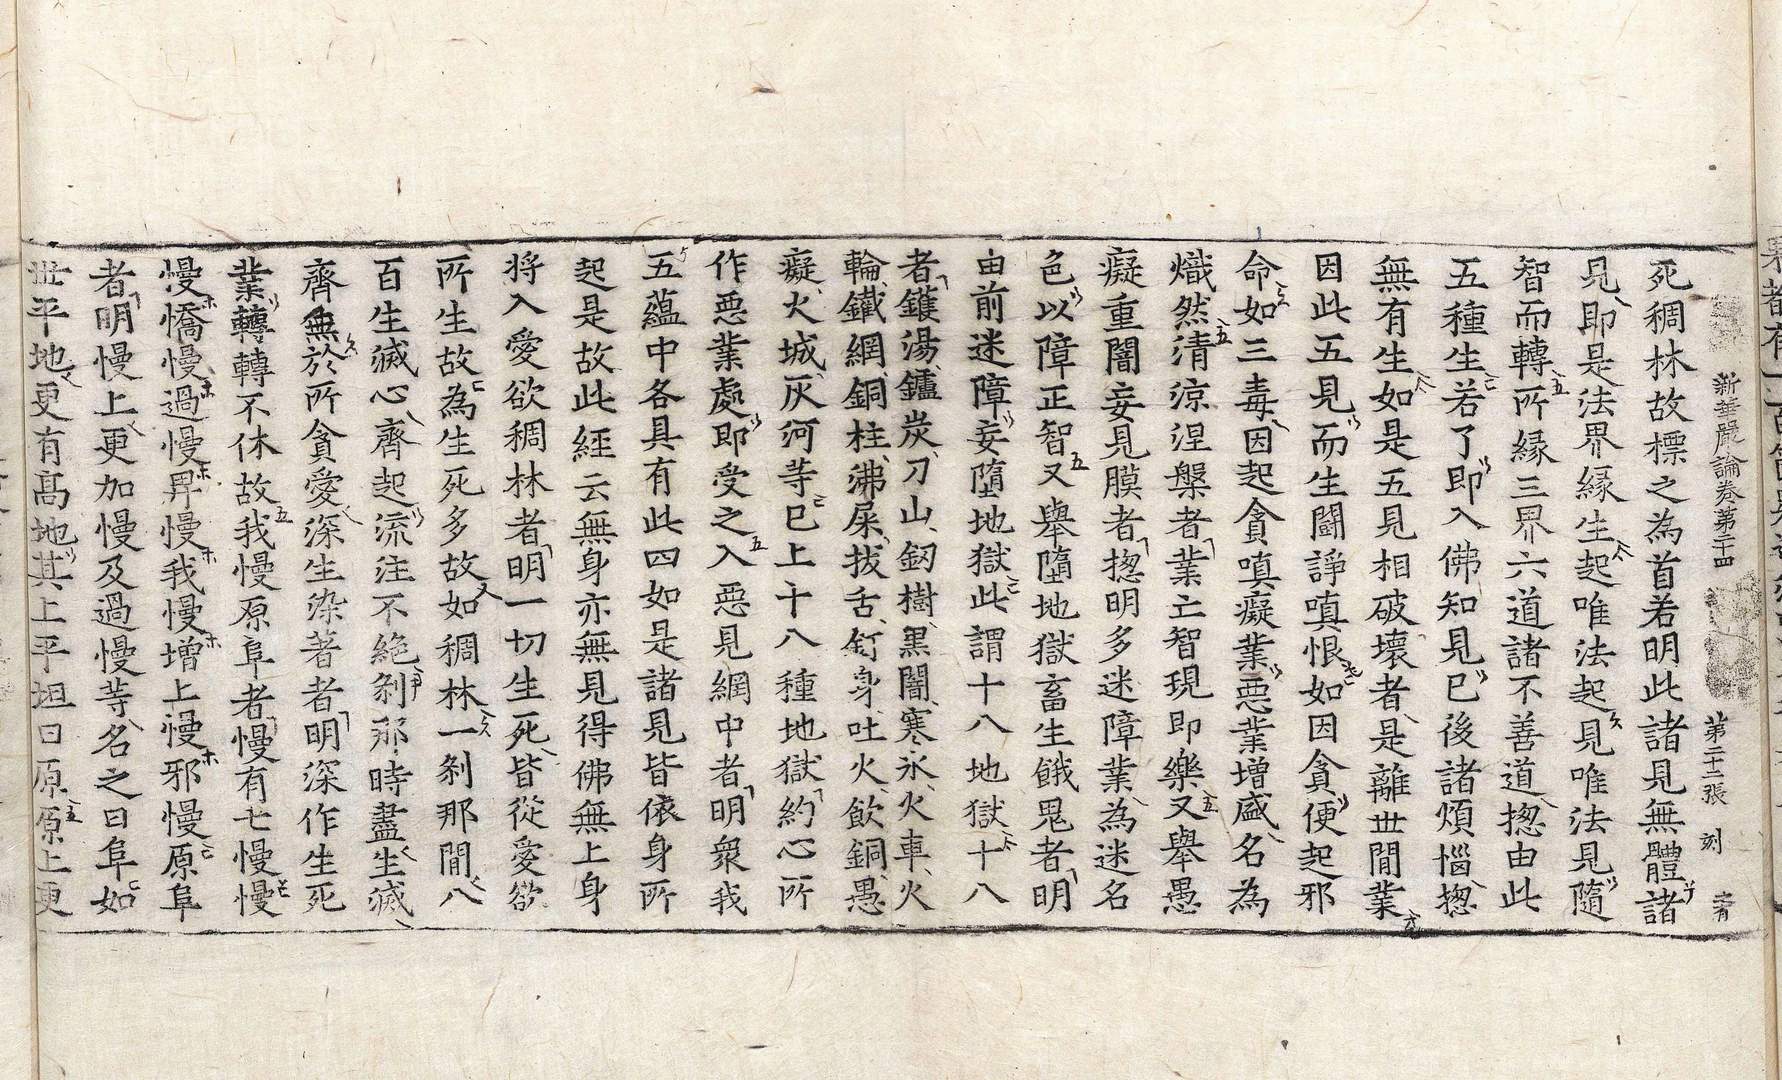 新華嚴論卷第二十四 第二十二張 刻
死稠林故標之為首若明此諸見無體諸
見即是法界緣生起唯法起見唯法見隨
智而轉所緣三界六道諸不善道揔由此
五種生若了即入佛知見已後諸煩惱揔
無有生如是五見相破壞者是離世間業
因此五見而生鬪諍嗔恨如因貪便起邪
命如三毒因起貪嗔癡業惡業增盛名為
熾然清涼涅槃者業亡智現即樂又舉愚
癡重闇妄見膜者揔明多迷障業為迷名
色以障正智又舉墮地獄畜生餓鬼者明
由前迷障妄墮地獄此謂十八地獄十八
者鑊湯鑪炭刀山釼樹黑闇寒氷火車火
輪鐵網銅柱沸屎拔舌釘身吐火飲銅愚
癡火城灰河等已上十八種地獄約心所
作惡業處即受之入惡見網中者明衆我
五蘊中各具有此四如是諸見皆依身所
起是故此經云無身亦無見得佛無上身
將入愛欲稠林者明一切生死皆從愛欲
所生故為生死多故如稠林一剎那間八
百生滅心齊起流注不絕剎那時盡生滅
齊無於所貪愛深生染著者明深作生死
業轉轉不休故我慢原阜者慢有七慢慢
慢憍慢過慢畀慢我慢增上慢邪慢原阜
者明慢上更加慢及過慢等名之曰阜如
世平地更有高地其上平坦曰原原上更